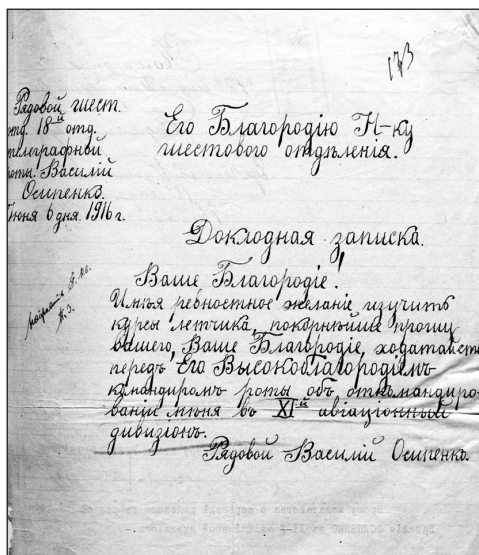 173
Рядовой шест.
отд. 18й отд.
телеграфной
роты. Василій
Осипенко.
Іюня 6 дня. 1916 г.
Его Благородію Н-ку
шестового отдѣленія.
Докладная записка.
Ваше Благородіе!
Имѣя ревностное желаніе изучить
курсы летчика, покорнѣйше прошу
вашего, Ваше Благородіе, ходатайств
передъ Его Высокоблагородіемъ
командиромъ роты объ откомандиро-
ваніи меня въ XI-й авіаціонный
дивизіонъ.
Рядовой Василій Осипенко.